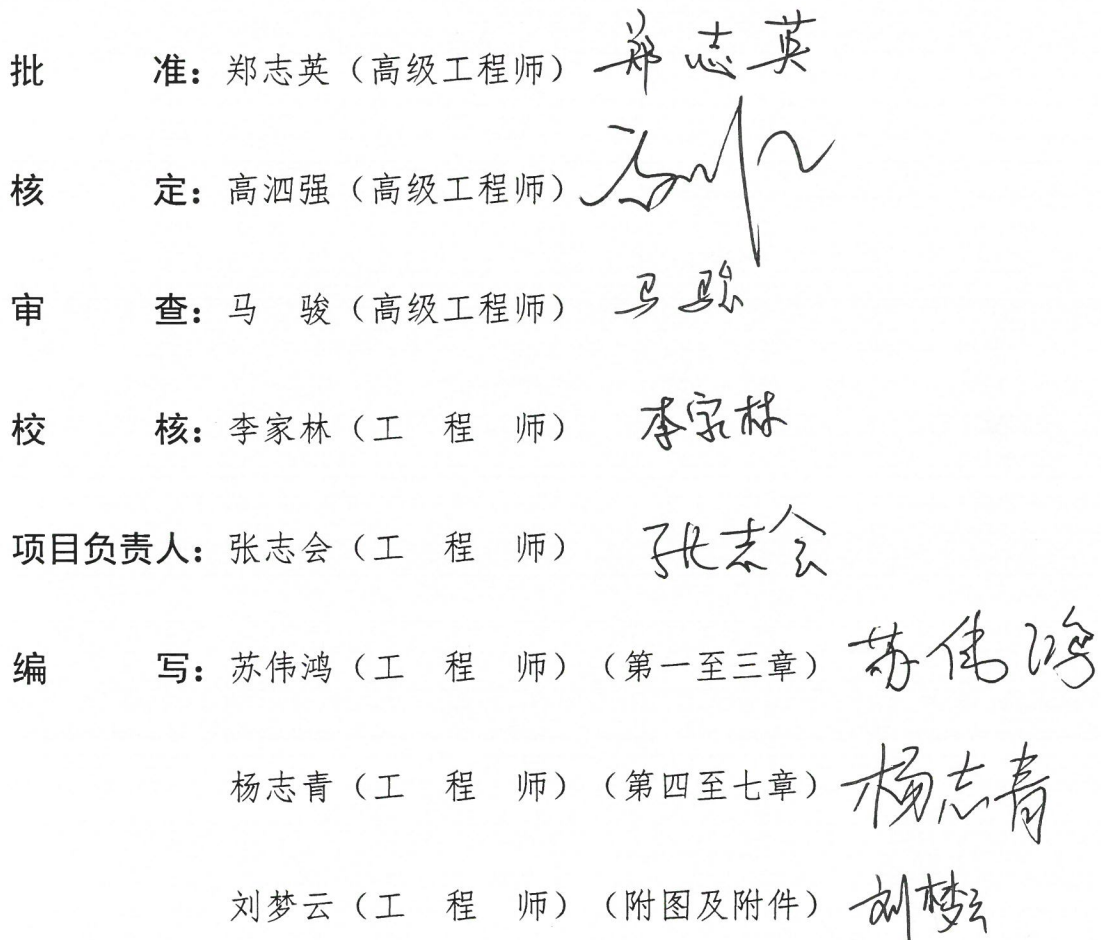 批 准：郑志英（高级工程师） 郑志英
核 定：高泗强（高级工程师）
审 查：马 骏（高级工程师） 马骏
校 核：李家林（工 程 师） 李家林
项目负责人：张志会（工 程 师） 张志会
编 写：苏伟鸿（工 程 师）（第一至三章） 苏伟鸿
杨志青（工 程 师）（第四至七章） 杨志青
刘梦云（工 程 师）（附图及附件） 刘梦云